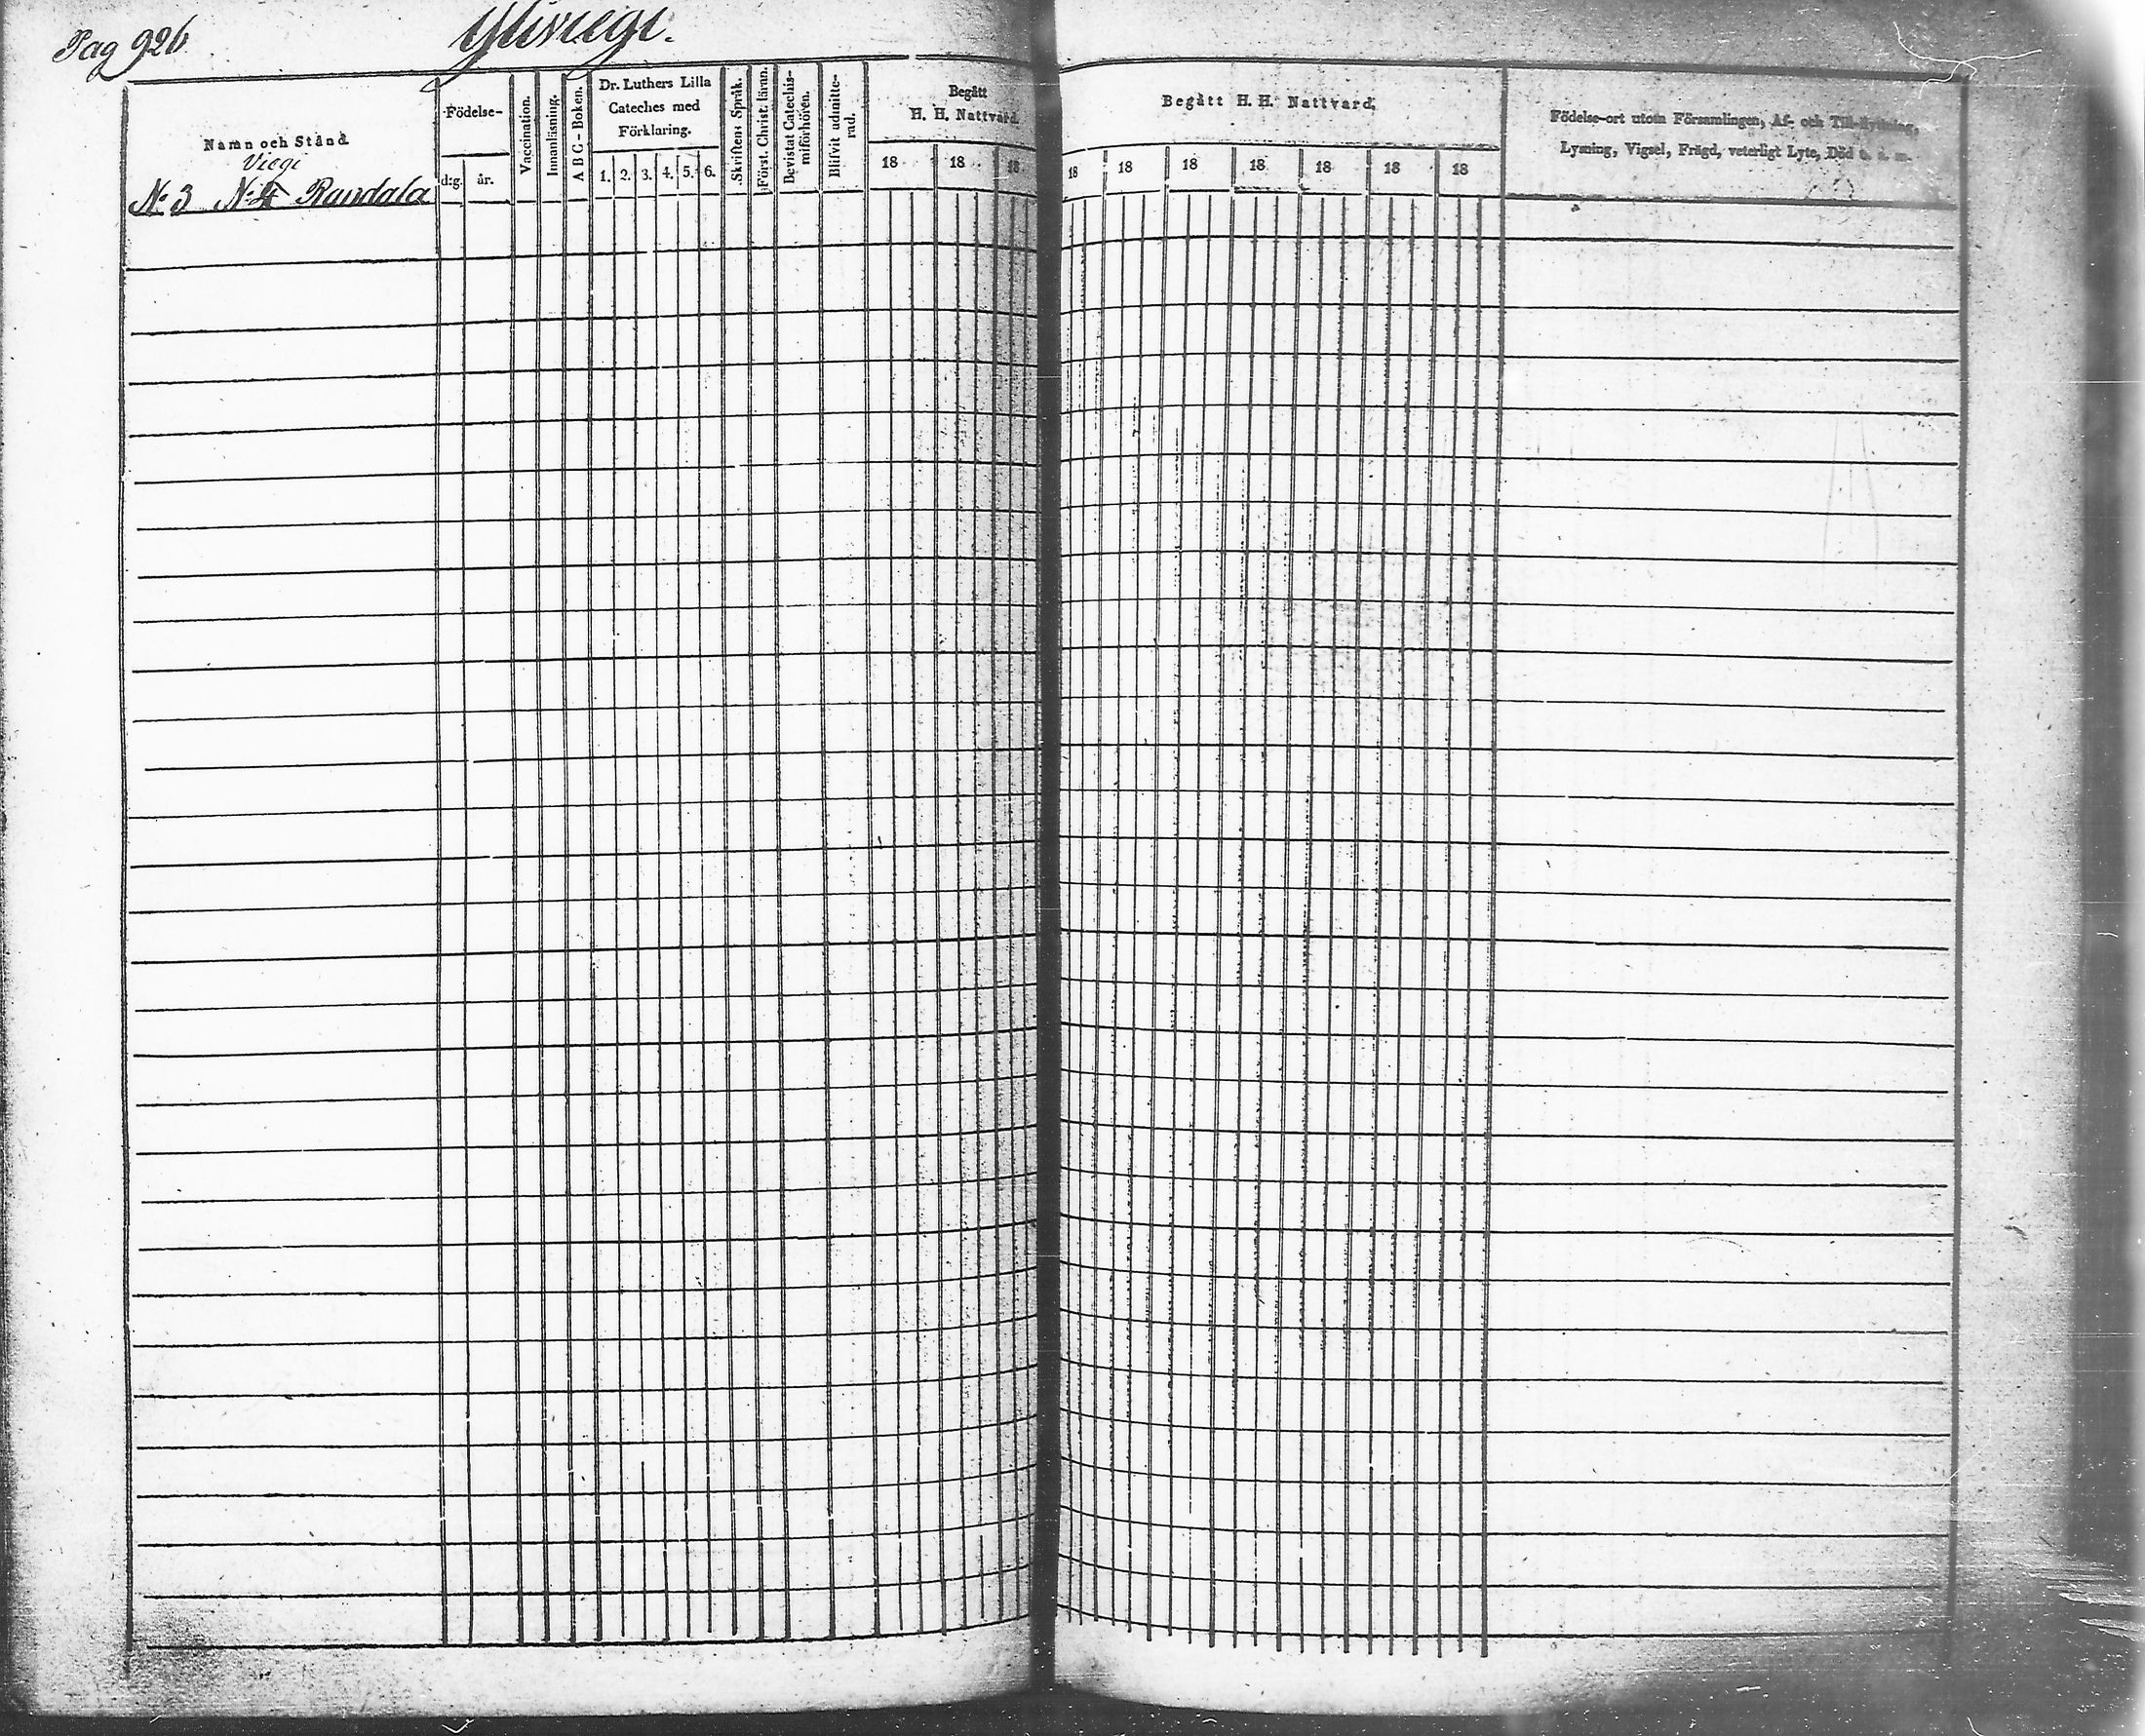 Pag 926
Yliviegi.
Namn och Stånd.
Viegi
N:3 N:4 Raudala
Födelse-
d:g. år.
Vaccination.
Innanläsning.
A B C - Boken.
Dr. Luthers Lilla
Cateches med
Förklaring.
1. 2. 3. 4. 5. 6.
Skriftens Språk.
Först. Christ. läran.
Bevistat Catechis-
miförhören.
Blifvit admitte-
rad.
Begått
H. H. Nattvard.
18 18 18
Begått H. H. Nattvard.
18 18 18 18 18 18 18
Födelse-ort utom Församlingen, Af- och Till-flyttning,
Lysning, Vigsel, Frägd, veterligt Lyte, Död o. s. m.